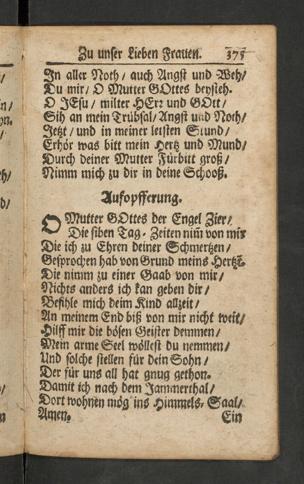 Zu unser Lieben Frauen. 375
In aller Noth / auch Angst und Weh /
Du mir / O Mutter GOttes beysteh.
O JEsu / milter HErr und GOtt /
Sih an mein Trübsal / Angst und Noth /
Jetzt / und in meiner letsten Stund /
Erhör was bitt mein Hertz und Mund /
Durch deiner Mutter Fürbitt groß /
Nimm mich zu dir in deine Schooß.
Aufopfferung.
O Mutter GOttes der Engel Zier /
Die siben Tag-Zeiten nim̃ von mir
Die ich zu Ehren deiner Schmertzen /
Gesprochen hab von Grund meins Hertzẽ.
Die nimm zu einer Gaab von mir /
Nichts anders ich kan geben dir /
Befihle mich deim Kind allzeit /
An meinem End biß von mir nicht weit /
Hilff mir die bösen Geister demmen /
Mein arme Seel wöllest du nemmen /
Und solche stellen für dein Sohn /
Der für uns all hat gnug gethon.
Damit ich nach dem Jammerthal /
Dort wohnen mög ins Himmels-Saal /
Amen. Ein